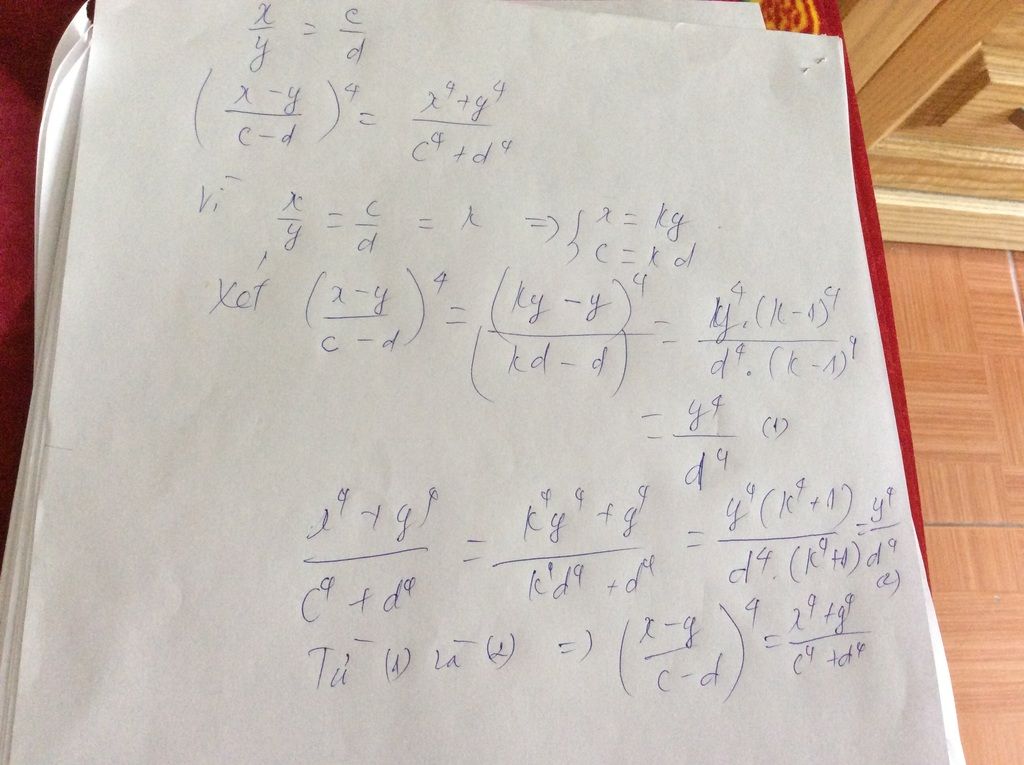 x/y = c/d
((x-y)/(c-d))^4 = (x^4+y^4)/(c^4+d^4)
Vì x/y = c/d = k => { x = ky
c = kd
Xét ((x-y)/(c-d))^4 = ((ky-y)/(kd-d))^4 = (y^4.(k-1)^4)/(d^4.(k-1)^4)
= y^4/d^4 (1)
(x^4+y^4)/(c^4+d^4) = (k^4y^4+y^4)/(k^4d^4+d^4) = (y^4(k^4+1))/(d^4.(k^4+1)) = y^4/d^4 (2)
Từ (1) và (2) => ((x-y)/(c-d))^4 = (x^4+y^4)/(c^4+d^4)